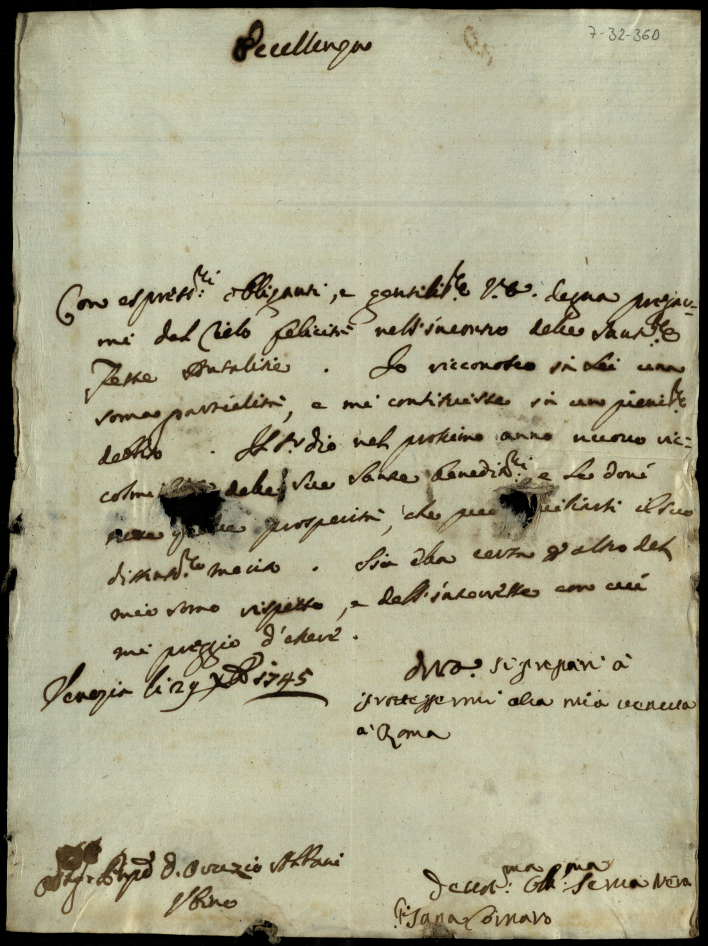 7-32-360
Eccellenza
Con espress.ni obliganti, e gentiliss.e V.E. degna pregar-
mi dal Cielo felicità nell'incontro delle Sant.me
Feste Natalitie. Io ricconosco in Lei una
soma parzialità, e mi constituisce in un pieniss.e
debito. Il Sr. Dio nel prossimo anno nuovo ric-
colmi delle Sue Sante benedit.ni e Le doni
prosperità, che può il suo
distint.mo merito. Sia Ella certa e altro del
mio somo rispetto, e dell'interesse con cui
mi preggio d'essere.
Venezia li 29 Xbre 1745
Di V.E. si prepari à
proteggermi alla mia venuta
à Roma
D. Orazio Albani
Urbino
Devot.ma Obl.ma Serva Vera
Pisana Cornaro